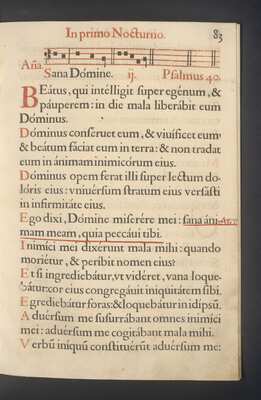 In primo Nocturno. 83
Aña. Sana Dómine. ij. Psalmus 40.
BEátus, qui intélligit super egénum, &
páuperem: in die mala liberábit eum
Dóminus.
Dóminus conseruet eum, & viuíficet eum
& beátum fáciat eum in terra: & non tradat
eum in ánimam inimicórum eius.
Dóminus opem ferat illi super lectum do-
lóris eius: vniuérsum stratum eius versásti
in infirmitáte eius.
Ego dixi, Dómine miserére mei: sana áni-
mam meam, quia peccáui tibi.
Inimíci mei dixérunt mala mihi: quando
moriétur, & períbit nomen eius?
Et si ingrediebátur, vt vidéret, vana loque-
bátur: cor eius congregáuit iniquitátem sibi.
Egrediebátur foras: & loquebátur in idípsũ.
Aduérsum me susurrábant omnes inimíci
mei: aduérsum me cogitábant mala mihi.
Verbũ iníquũ constituérũt aduérsum me: